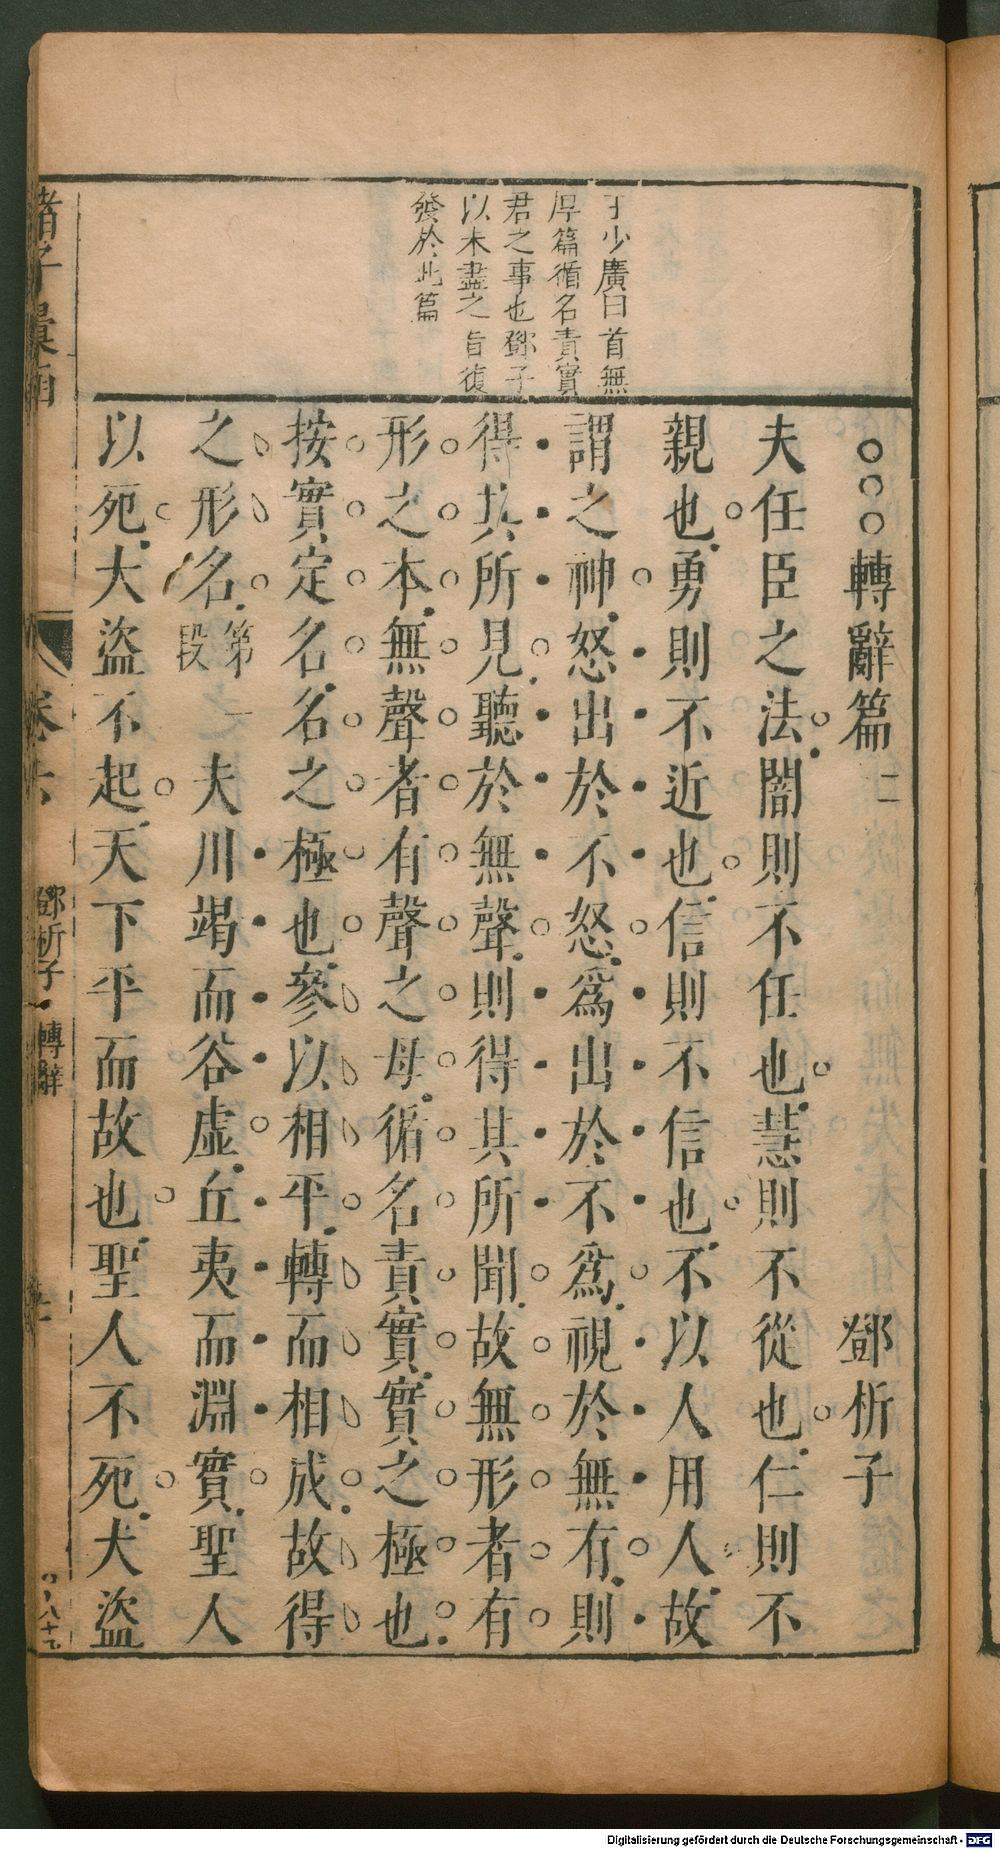 于少廣曰首無
厚篇循名責實
君之事也鄧子
以未盡之旨復
發於此篇
○○○轉辭篇二 鄧析子
夫任臣之法闇則不任也慧則不從也仁則不
親也勇則不近也信則不信也不以人用人故
謂之神怒出於不怒爲出於不爲視於無有則
得其所見聽於無聲則得其所聞故無形者有
形之本無聲者有聲之母循名責實實之極也
按實定名名之極也參以相平轉而相成故得
之形名 第一段 夫川竭而谷虛丘夷而淵實聖人
以死大盜不起天下平而故也聖人不死大盜
諸子彙函 卷六 鄧析子 轉辭
Digitalisierung gefördert durch die Deutsche Forschungsgemeinschaft - DFG